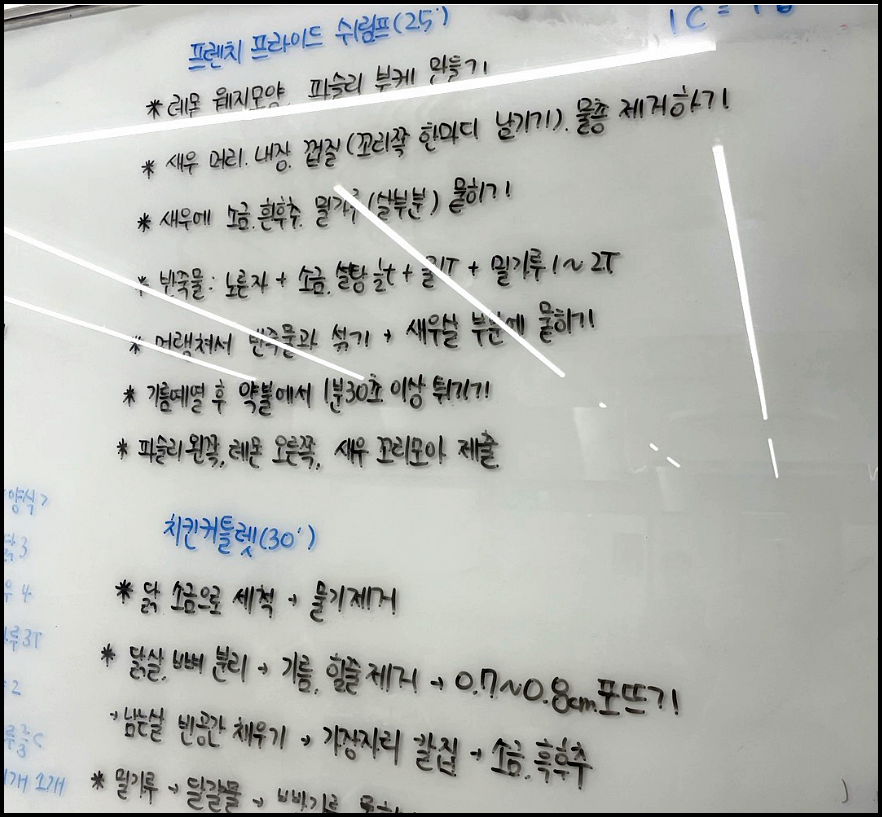 프렌치 프라이드 쉬림프(25')
* 레몬 웨지모양, 파슬리 부케 만들기
* 새우 머리. 내장. 껍질(꼬리쪽 한마디 남기기). 물총 제거하기
* 새우에 소금. 흰후추. 밀가루(살부분) 뭍히기
* 반죽물: 노른자 + 소금, 설탕 ½t + 물1T + 밀가루 1~2T
* 머랭쳐서 반죽물과 섞기 → 새우살 부분에 뭍히기
* 기름예열 후 약불에서 1분30초 이상 튀기기
* 파슬리 왼쪽, 레몬 오른쪽, 새우 꼬리모아 제출
치킨커틀렛(30')
* 닭 소금으로 세척 → 물기제거
* 닭살, 뼈 분리 → 기름, 힘줄 제거 → 0.7~0.8cm 포뜨기
→ 남는살 빈공간 채우기 → 가장자리 칼집 → 소금, 흑후추
* 밀가루 → 달걀물 → 빵가루
양식
닭 3
4
3T
2
⅔C
1개